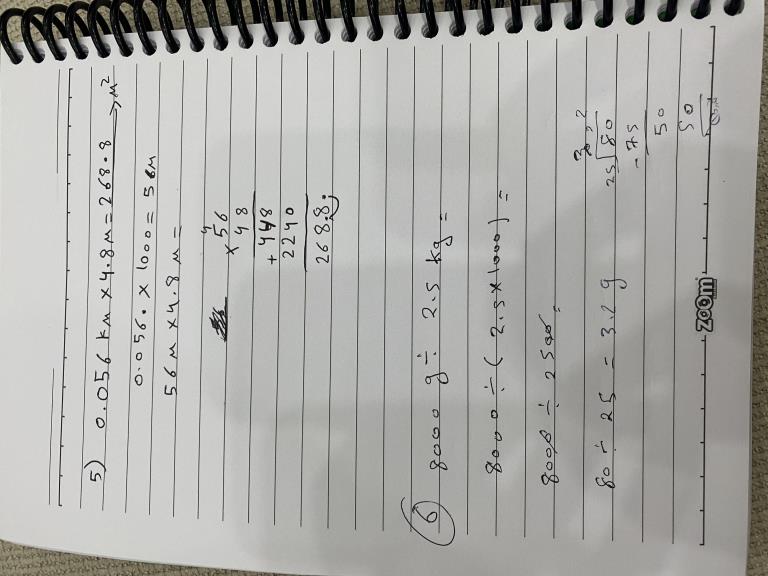 5) 0.056 KM × 4.8 M = 268.8 M²
0.056. × 1000 = 56M
56M × 4.8 M =
4
56
× 48
+ 448
2240
268.8.
6 8000 g ÷ 2.5 kg =
8000 ÷ ( 2.5 × 1000 ) =
8000 ÷ 2500 =
80 ÷ 25 = 3.2 g
3.2
25 80
- 75
50
50
zoom